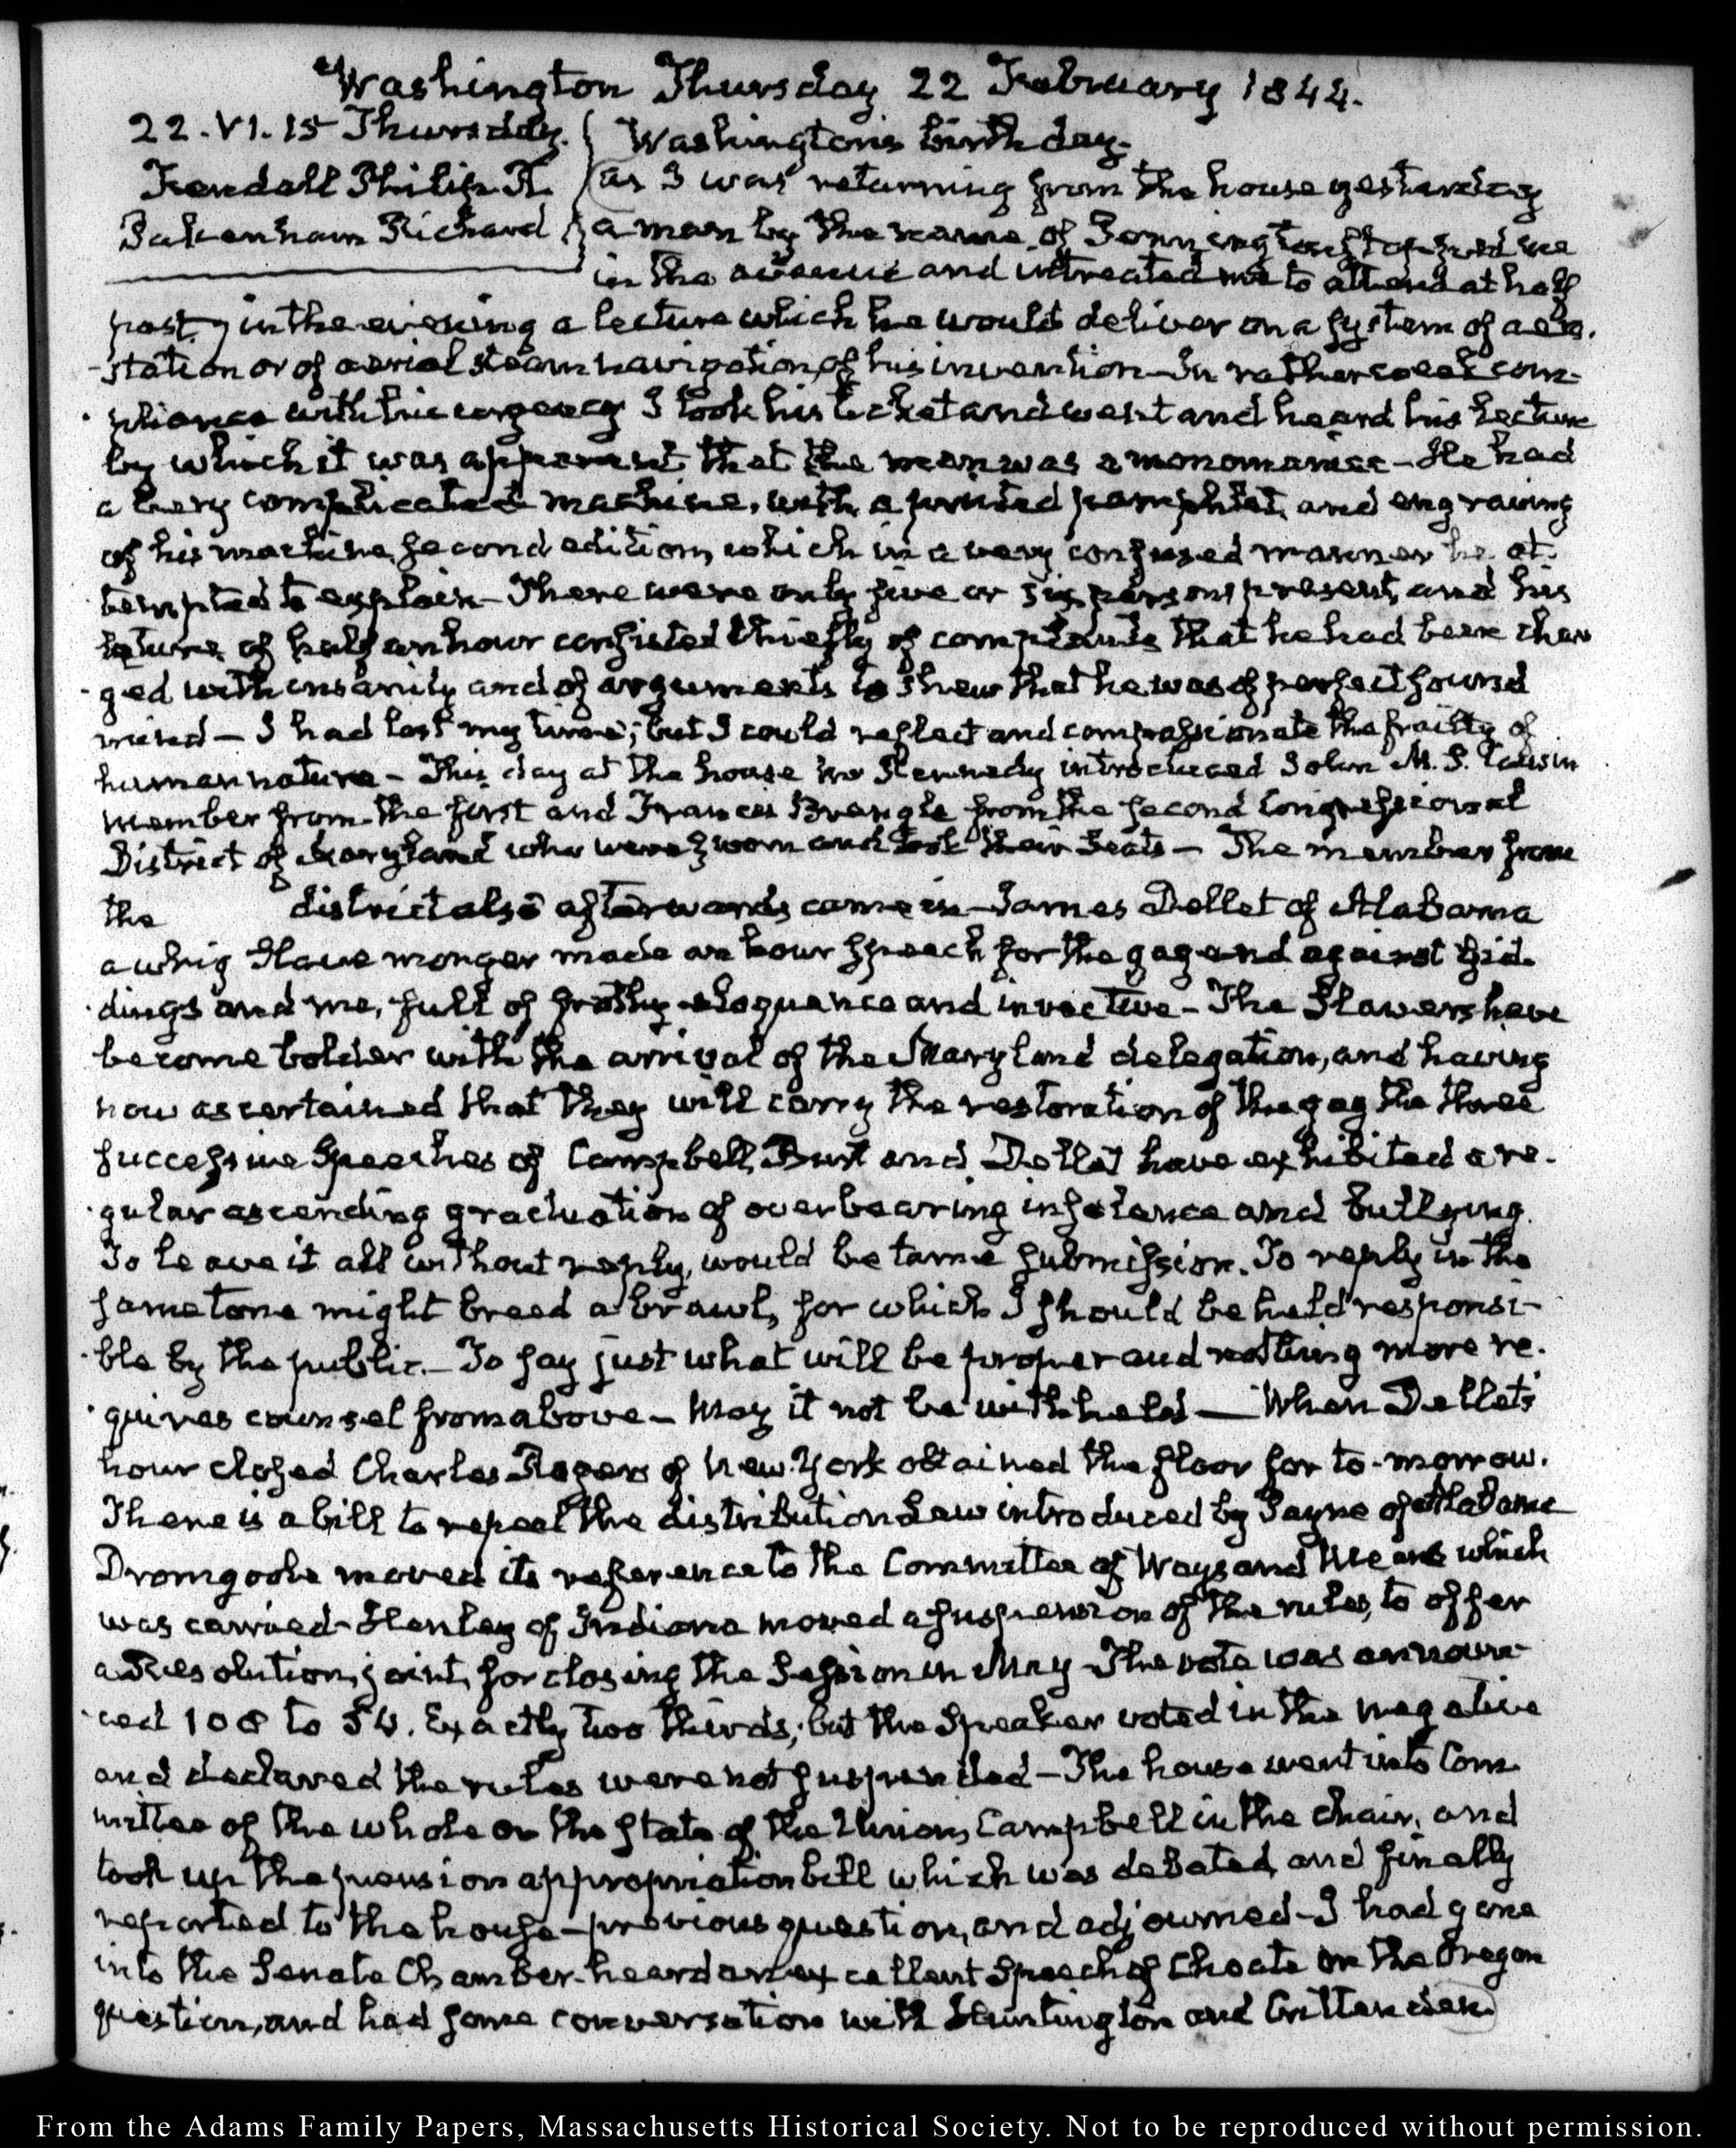 Washington Thursday 22 February 1844.
22. VI. 15 Thursday.
Fendall Philip R.
Pakenham Richard
Washington's birth day.
as I was returning from the house yesterday
a man by the name of Pennington stopped me
in the avenue and intreated me to attend at half
past 7 in the evening a lecture which he would deliver on a system of aero-
station or of aerial steam navigation, of his invention—In rather weak com-
pliance with his urgency I took his ticket and went and heard his lecture
by which it was apparent that the man was a monomaniac—He had
a very complicated machine, with a printed pamphlet, and engraving
of his machine, second edition, which in a very confused manner he at-
tempted to explain—There were only five or six persons present, and his
lecture of half an hour consisted chiefly of complaints that he had been char
ged with insanity and of arguments to shew that he was of perfect sound
mind—I had lost my time; but I could reflect and compassionate the frailty of
human nature—This day at the house Mr Kennedy introduced John M. S. Causin
member from the first and Francis Brengle from the second Congressional
District of Maryland who were sworn and took their Seats—The member from
the district also afterwards came in—James Dellet of Alabama
a whig Slave monger made an hour speech for the gag and against Gid-
dings and me, full of frothy eloquence and invective—The Slavers have
become bolder with the arrival of the Maryland delegation, and having
now ascertained that they will carry the restoration of the gag the three
successive Speeches of Campbell, Burt and Dellet have exhibited a re-
gular ascending graduation of overbearing insolence and bullying.
To leave it all without reply, would be tame submission. To reply in the
same tone might breed a brawl, for which I should be held responsi-
ble by the public.—To say just what will be proper and nothing more re-
quires counsel from above—May it not be withheld—When Dellet's
hour closed Charles Rogers of New-York obtained the floor for to-morrow.
There is a bill to repeal the distribution Law introduced by Payne of Alabama
Dromgoole moved its reference to the Committee of Ways and Means which
was carried—Henley of Indiana moved a suspension of the rules, to offer
a Resolution, joint, for closing the Session in May—The vote was announ-
ced 108 to 54. Exactly two thirds; but the Speaker voted in the negative
and declared the rules were not suspended—The house went into Com-
mittee of the whole on the state of the Union, Campbell in the Chair, and
took up the pension appropriation bill which was debated and finally
reported to the house—previous question, and adjourned—I had gone
into the Senate Chamber—heard an excellent Speech of Choate on the Oregon
question, and had some conversation with Huntington and Crittenden
From the Adams Family Papers, Massachusetts Historical Society. Not to be reproduced without permission.